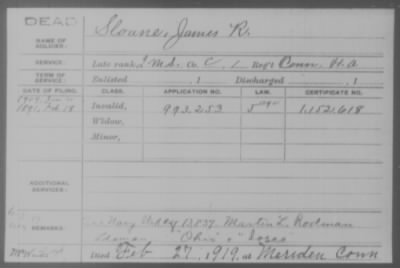 DEAD
NAME OF SOLDIER: Sloane, James R.
SERVICE: Late rank, Co. C, 1 Reg't Conn. H.A.
TERM OF SERVICE: Enlisted , 1 Discharged , 1
DATE OF FILING. CLASS. APPLICATION NO. LAW. CERTIFICATE NO.
1891, Feb 18 Invalid, 993.253 1.152.618
Widow,
Minor,
ADDITIONAL SERVICES:
REMARKS: Navy 13837 Martin L.
"Ohio"
Died Feb 27, 1919, at Meriden Conn